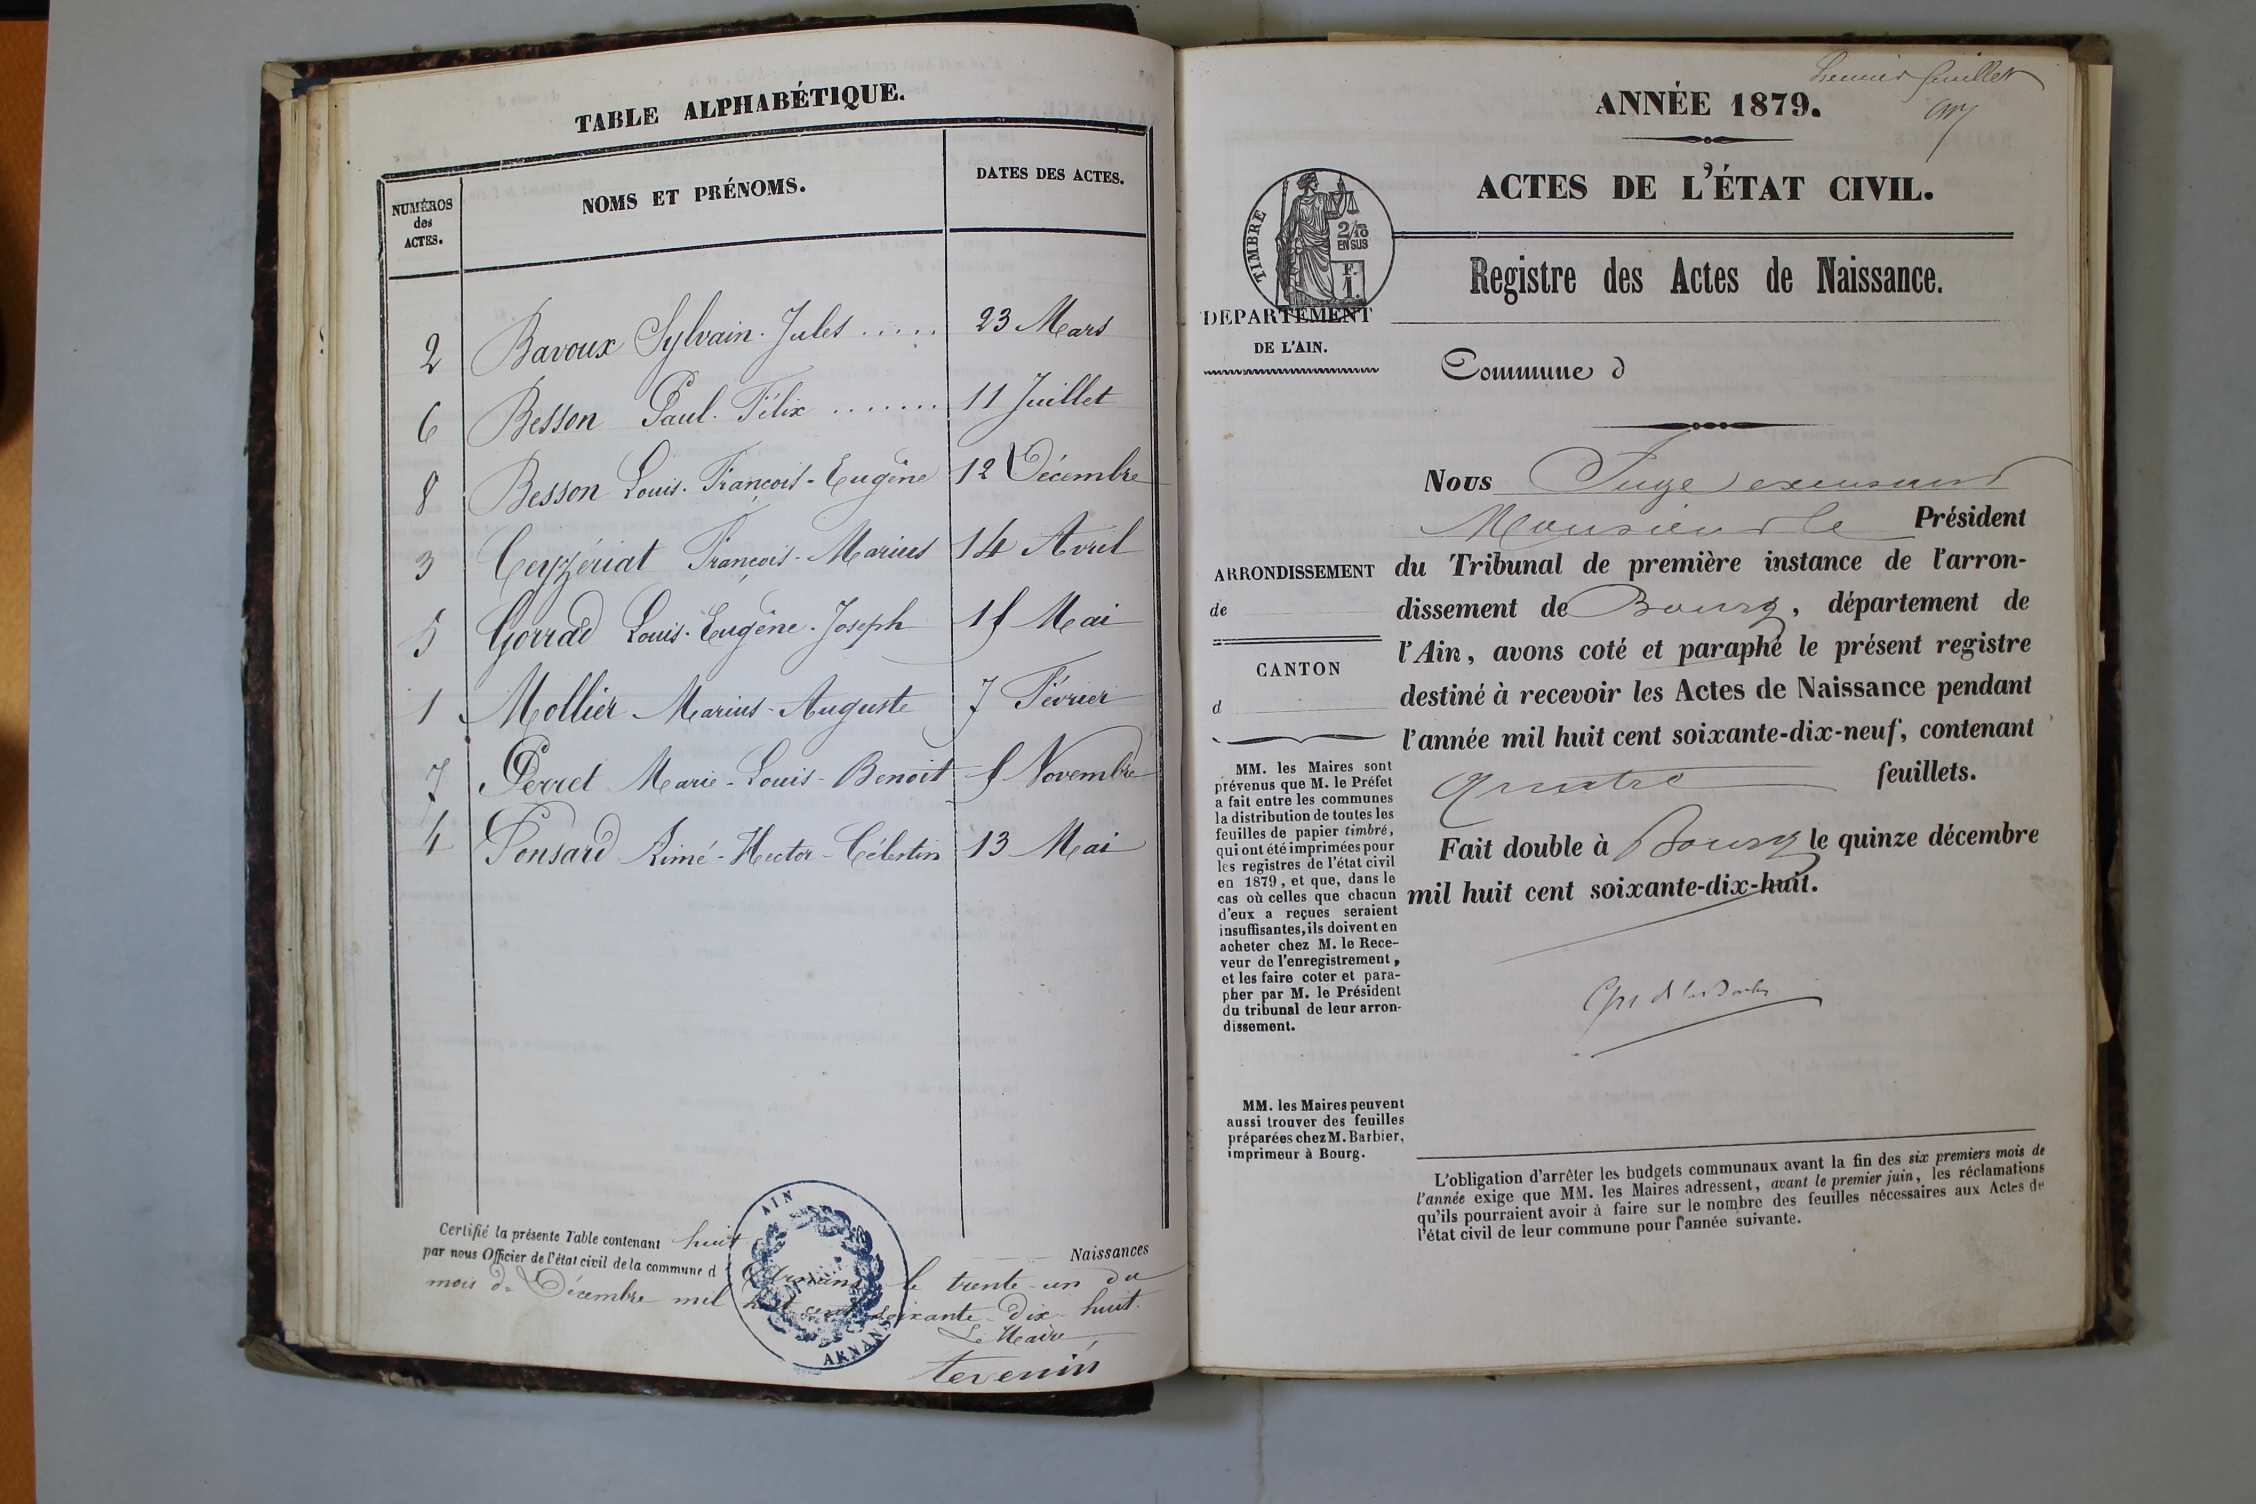 TABLE ALPHABÉTIQUE.
NUMÉROS des ACTES. NOMS ET PRÉNOMS. DATES DES ACTES.
2 Bavoux Sylvain-Jules ..... 23 Mars
6 Besson Paul-Félix ....... 11 Juillet
8 Besson Louis-François-Eugène 12 Décembre
3 Ceyzériat François-Marius 14 Avril
5 Gorrad Louis-Eugène-Joseph Mai
1 Mollier Marius-Auguste 7 Février
7 Perret Marie-Louis-Benoit Novembre
4 Ponsard Aimé-Hector-Célestin 13 Mai
Certifié la présente Table contenant huit Naissances
par nous Officier de l'état civil de la commune d Arnans le trente-un du
mois de Décembre mil huit cent soixante-dix-huit.
Le Maire
tevenin
AIN
ARNANS
premier feuillet
ANNÉE 1879.
ACTES DE L'ÉTAT CIVIL.
TIMBRE
2/10 EN SUS
F.
1.
Registre des Actes de Naissance.
DEPARTEMENT
DE L'AIN.
Commune d
Nous Juge
Monsieur le Président
du Tribunal de première instance de l'arron-
dissement de Bourg, département de
l'Ain, avons coté et paraphé le présent registre
destiné à recevoir les Actes de Naissance pendant
l'année mil huit cent soixante-dix-neuf, contenant
quatre feuillets.
Fait double à Bourg le quinze décembre
mil huit cent soixante-dix-huit.
ARRONDISSEMENT
de
CANTON
d
MM. les Maires sont
prévenus que M. le Préfet
a fait entre les communes
la distribution de toutes les
feuilles de papier timbré,
qui ont été imprimées pour
les registres de l'état civil
en 1879, et que, dans le
cas où celles que chacun
d'eux a reçues seraient
insuffisantes, ils doivent en
acheter chez M. le Rece-
veur de l'enregistrement,
et les faire coter et para-
pher par M. le Président
du tribunal de leur arron-
dissement.
MM. les Maires peuvent
aussi trouver des feuilles
préparées chez M. Barbier,
imprimeur à Bourg.
L'obligation d'arrêter les budgets communaux avant la fin des six premiers mois de
l'année exige que MM. les Maires adressent, avant le premier juin, les réclamations
qu'ils pourraient avoir à faire sur le nombre des feuilles nécessaires aux Actes de
l'état civil de leur commune pour l'année suivante.